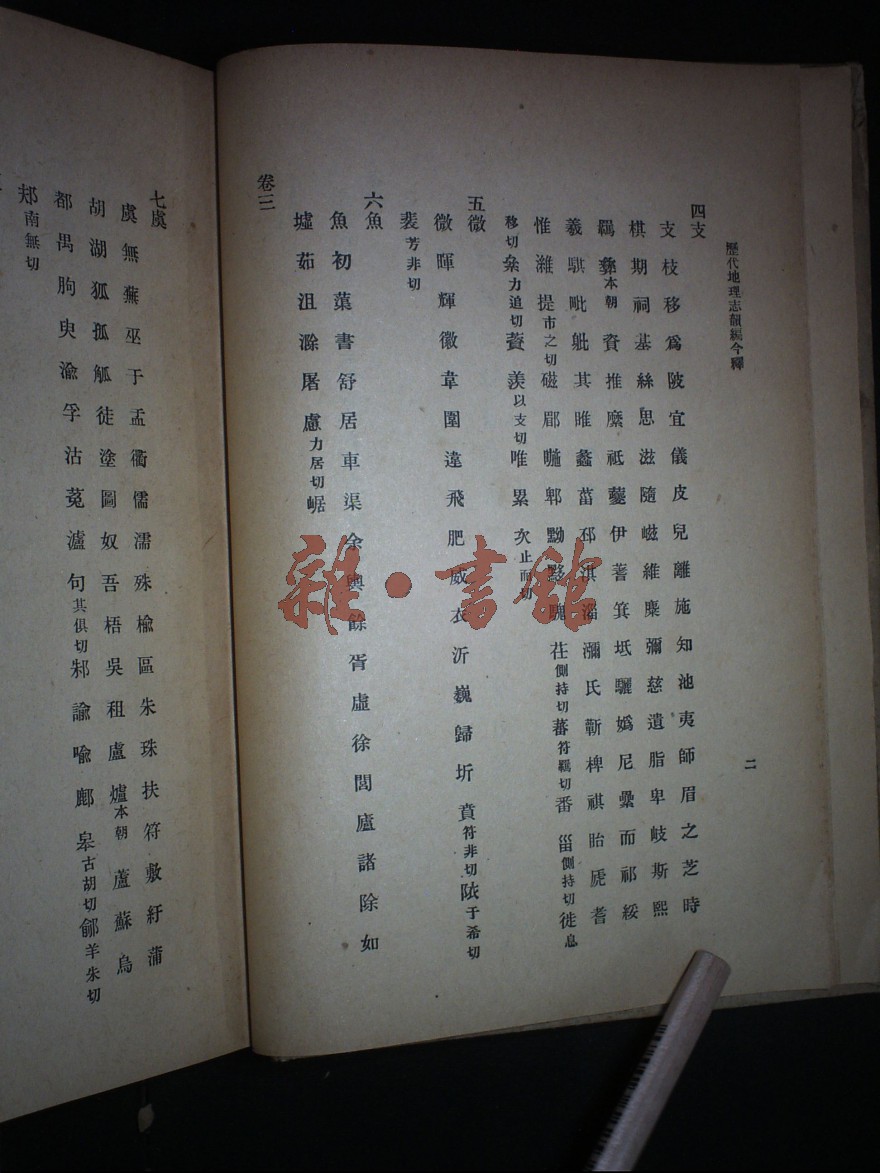 歷代地理志韻編今釋
二
四支
支枝移爲陂宜儀皮兒離施知池夷師眉之芝時
棋期祠基絲思滋隨嵫維麋彌慈遺脂卑岐斯熙
羈彝本朝資推縻祗夔伊蓍箕坻驪嬀尼纍而祁綏
羲騏毗觜其睢蠡菑邳淇淄瀰氏蘄椑祺貽虒耆
惟濰提市之切磁郿郫黝黟隗茬側持切蕃符羈切番甾側持切徙息
移切絫力追切薋羡以支切唯累次止而切
五微
微暉輝徽韋圍違飛肥威衣沂巍歸圻賁符非切陭于希切
裴芳非切
六魚
魚初蕖書舒居車渠余輿餘胥虛徐閭廬諸除如
墟茹沮滁屠慮力居切崌
卷三
七虞
虞無蕪巫于盂衢儒濡殊榆區朱珠扶符敷紆蒲
胡湖狐孤觚徒塗圖奴吾梧吳租盧爐本朝蘆蘇烏
都禺朐臾渝孚沽菟瀘句其俱切邾諭喻鄜皋古胡切鄃羊朱切
郟南無切
雜·書館